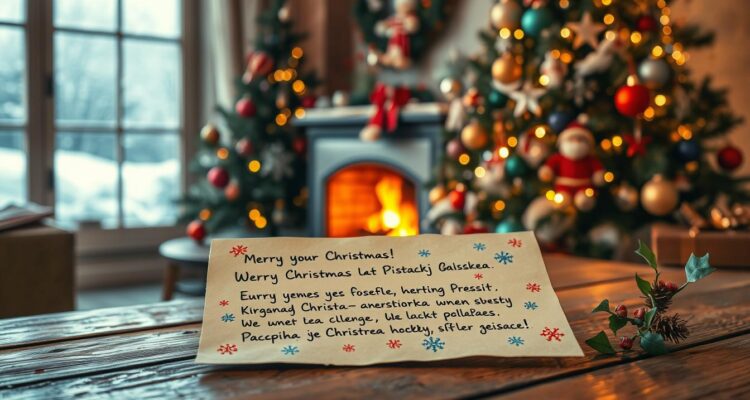 Merry your Christmas!
Werry Christmas Let Pistackj Galsskea.
Eurry yemes yes fosefle, herting Pressit.
Kirganad Christa-anerstiorka wnen sbesty
We wnet lea cllenge, We lackt pollaPaes.
Paccpiha je Christrea hockby, sifler geisace!